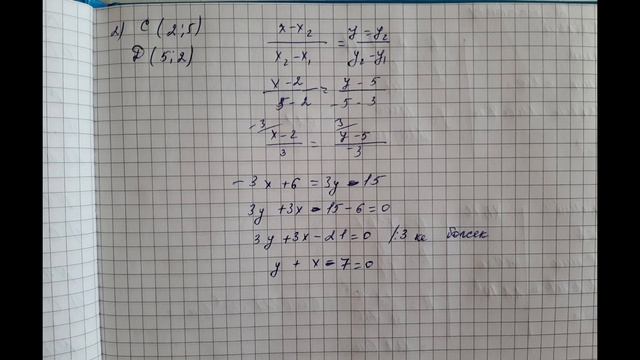 2) C (2;5)
D (5;2)
x-x₂/x₂-x₁ = y=y₂/y₂-y₁
x-2/5-2 = y-5/-5-3
-3/ x-2/3 = 3/ y-5/-3
-3x+6=3y-15
3y+3x-15-6=0
3y+3x-21=0 /:3 ке бөлсек
y + x-7=0